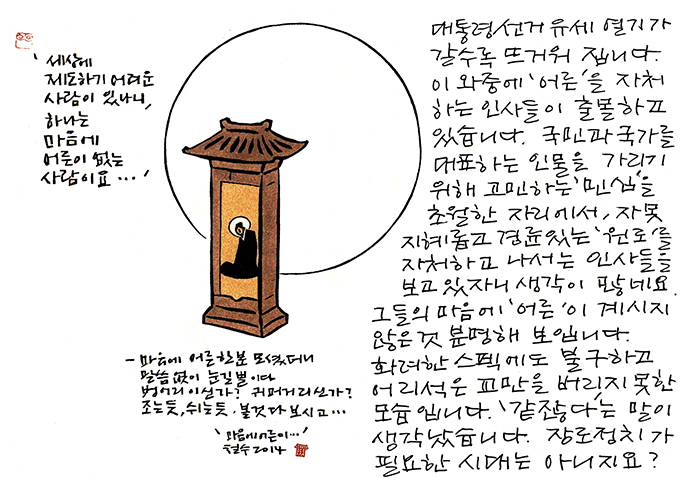 '세상에
제도하기 어려운
사람이 있나니,
하나는
마음에
어른이 없는
사람이요…'
- 마음에 어른 한 분 모셨더니
말씀 없이 눈길뿐이다
벙어리이신가? 귀머거리신가?
조는듯, 쉬는듯. 볼것 다 보시고…
'마음에 어른이…'
철수 2014
대통령선거 유세 열기가
갈수록 뜨거워 집니다.
이 와중에 '어른'을 자처
하는 인사들이 출몰하고
있습니다. 국민과 국가를
대표하는 인물을 가리기
위해 고민하는 '민심'을
초월한 자리에서, 자못
지혜롭고 경륜있는 '원로'를
자처하고 나서는 인사들을
보고 있자니 생각이 많네요.
그들의 마음에 '어른'이 계시지
않은 것 분명해 보입니다.
화려한 스펙에도 불구하고
어리석은 교만을 버리지 못한
모습입니다. '같잖다'는 말이
생각났습니다. 장로정치가
필요한 시대는 아니지요?